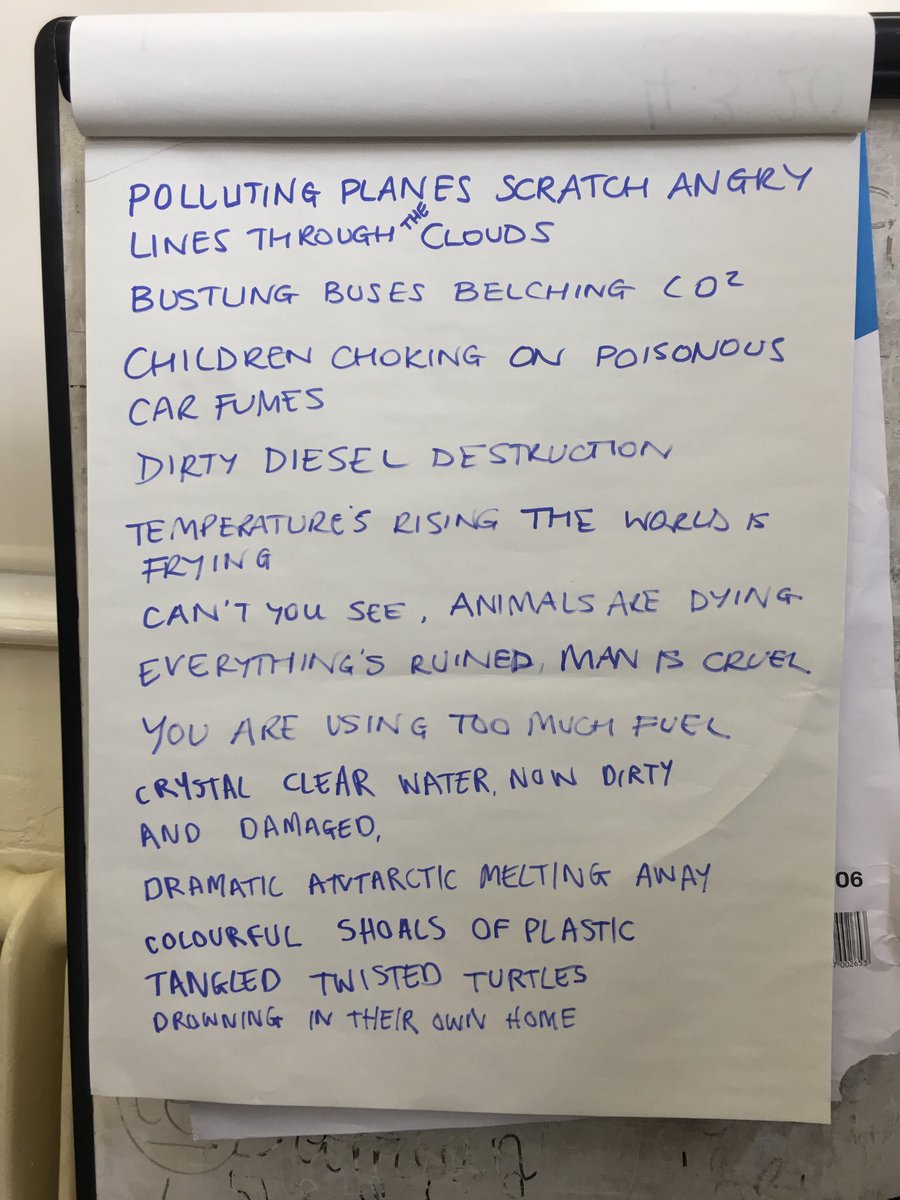 POLLUTING PLANES SCRATCH ANGRY
LINES THROUGH THE CLOUDS
BUSTLING BUSES BELCHING CO²
CHILDREN CHOKING ON POISONOUS
CAR FUMES
DIRTY DIESEL DESTRUCTION
TEMPERATURE'S RISING THE WORLD IS
FRYING
CAN'T YOU SEE, ANIMALS ARE DYING
EVERYTHING'S RUINED, MAN IS CRUEL
YOU ARE USING TOO MUCH FUEL
CRYSTAL CLEAR WATER, NOW DIRTY
AND DAMAGED,
DRAMATIC ANTARCTIC MELTING AWAY
COLOURFUL SHOALS OF PLASTIC
TANGLED TWISTED TURTLES
DROWNING IN THEIR OWN HOME
06
002693